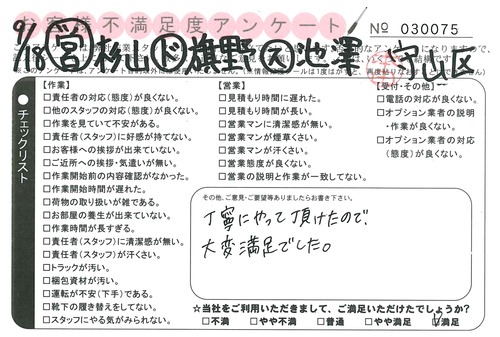 お客様不満足度アンケート
№ 030075
9/18 営杉山 ド旗野 ス池澤 守山区
チェックリスト
【作業】
□責任者の対応(態度)が良くない。
□他のスタッフの対応(態度)が良くない。
□作業を見ていて不安がある。
□責任者(スタッフ)に好感が持てない。
□お客様への挨拶が出来ていない。
□ご近所への挨拶・気遣いが無い。
□作業開始前の内容確認がなかった。
□作業開始時間が遅れた。
□荷物の取り扱いが雑である。
□お部屋の養生が出来ていない。
□作業時間が長すぎる。
□責任者(スタッフ)に清潔感が無い。
□責任者(スタッフ)が汗くさい。
□トラックが汚い。
□梱包資材が汚い。
□運転が不安(下手)である。
□靴下の履き替えをしてない。
□スタッフにやる気がみられない。
【営業】
□見積もり時間に遅れた。
□見積もり時間が長い。
□営業マンに清潔感が無い。
□営業マンが煙草くさい。
□営業マンが汗くさい。
□営業態度が良くない。
□営業の説明と作業が一致してない。
【受付・その他】
□電話の対応が良くない。
□オプション業者の説明
・作業が良くない。
□オプション業者の対応
(態度)が良くない。
その他、ご意見・ご要望等ありましたらお書き下さい。
丁寧にやって頂けたので、
大変満足でした。
☆当社をご利用いただきまして、ご満足いただけたでしょうか?
□不満 □やや不満 □普通 □やや満足 ☑満足